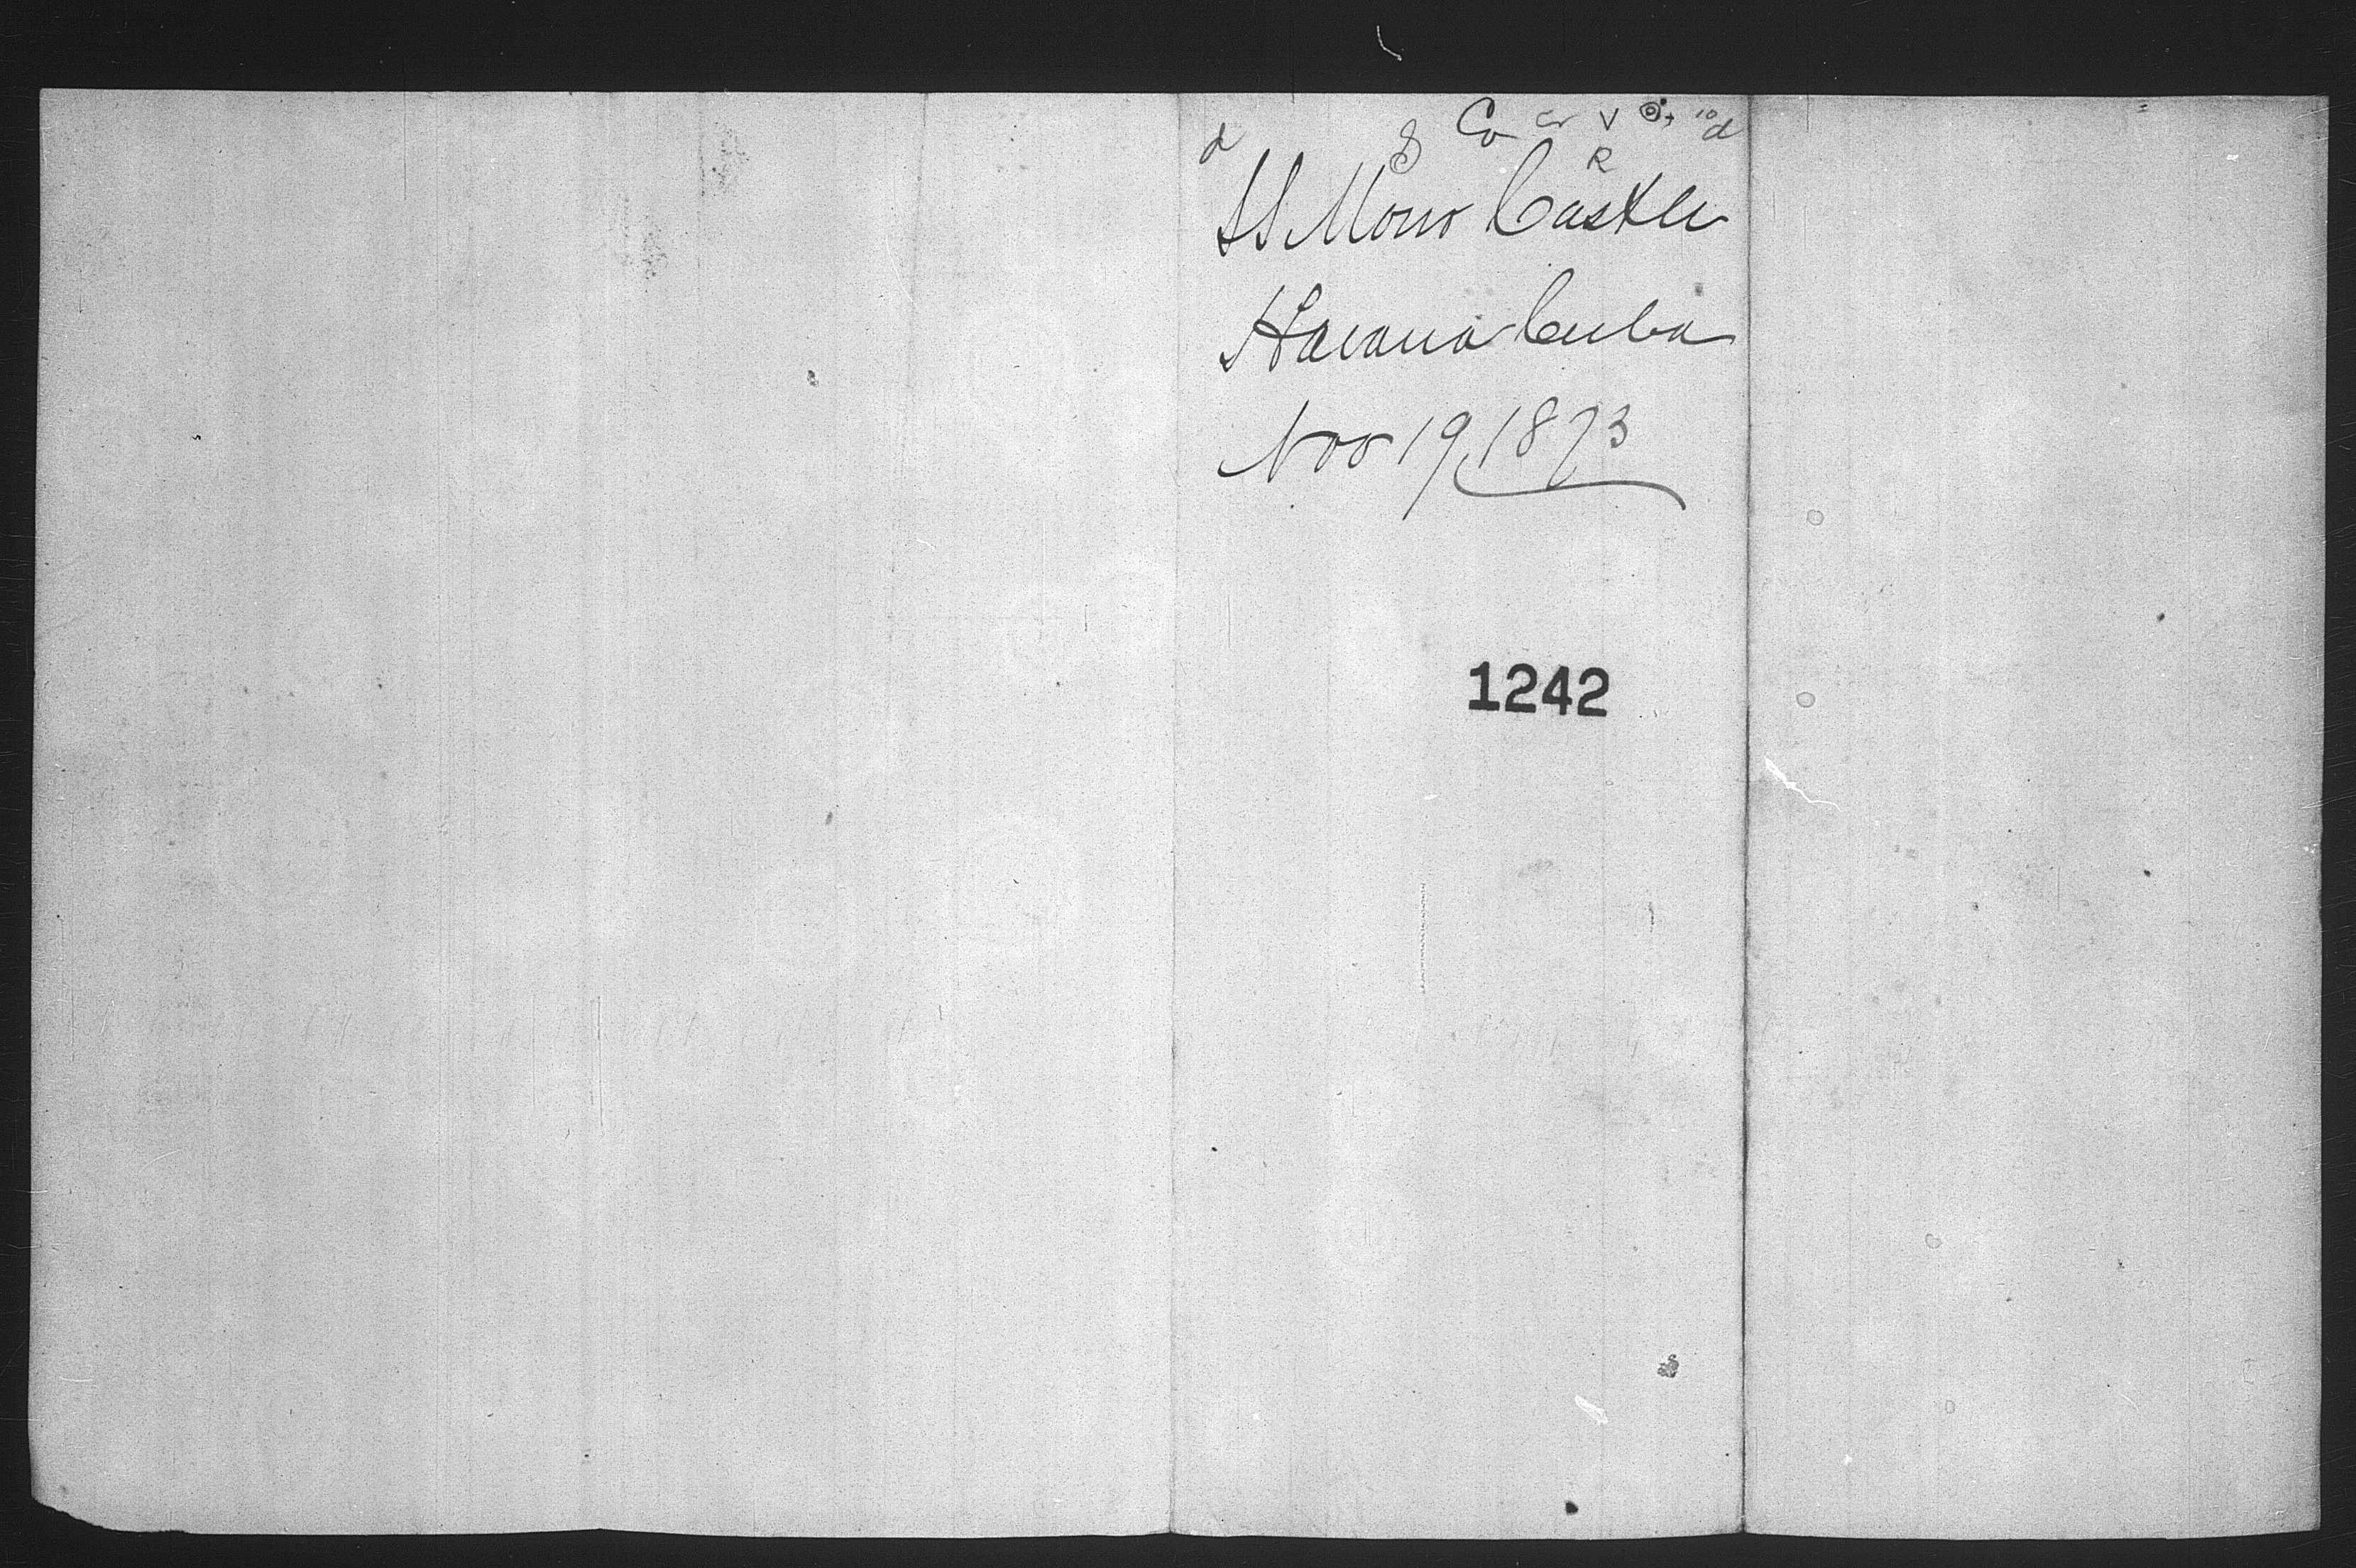 d Co Cr V 10 d
R
SS Morro Castle
Havana Cuba
Nov 19, 1873
1242